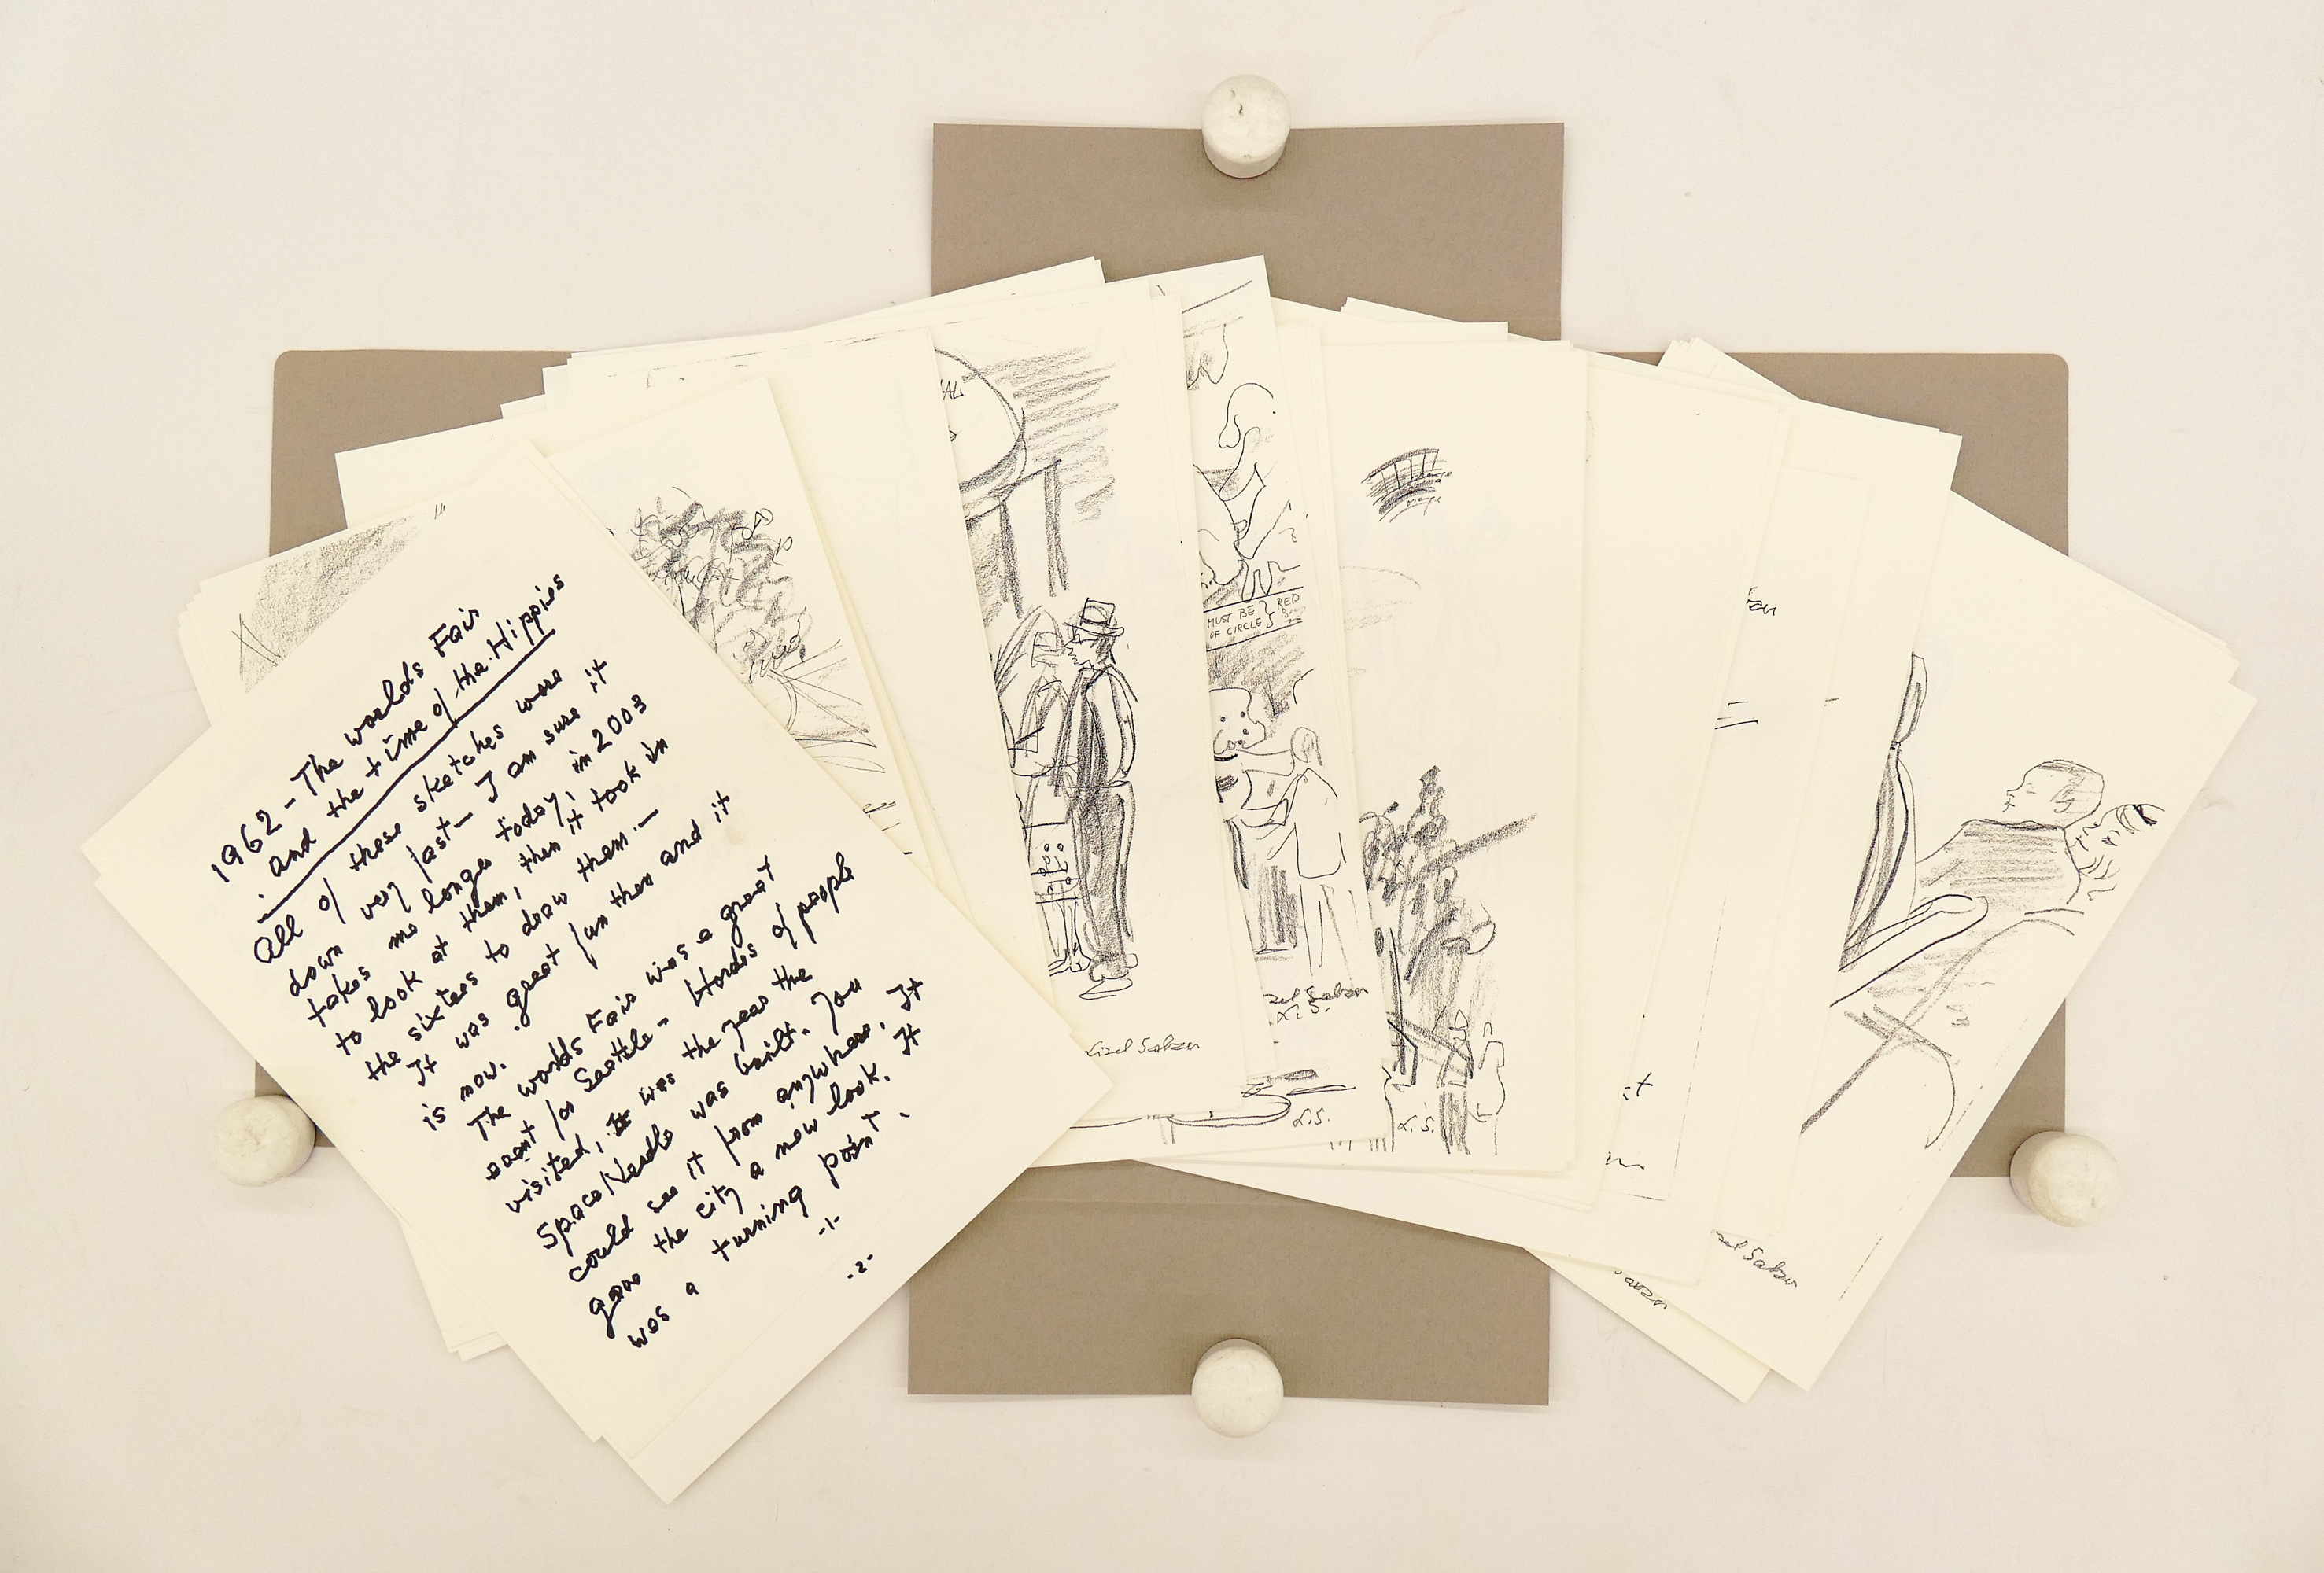 1962 - The worlds Fair
and the time of the Hippies
All of these sketches were
down very fast - I am sure it
takes me longer today, in 2003
to look at them, than it took in
the sixties to draw them. -
It was great fun then and it
is now.
The worlds Fair was a great
event for Seattle - Hordes of people
visited, it was the year the
Space Needle was built. You
could see it from anywhere. It
gave the city a new look. It
was a turning point.
-1-
-2-
AL
Lisel Salzer
MUST BE } RED
OF CIRCLE }
zel Salzer
L.S.
L.S.
L.S.
zel Salzer